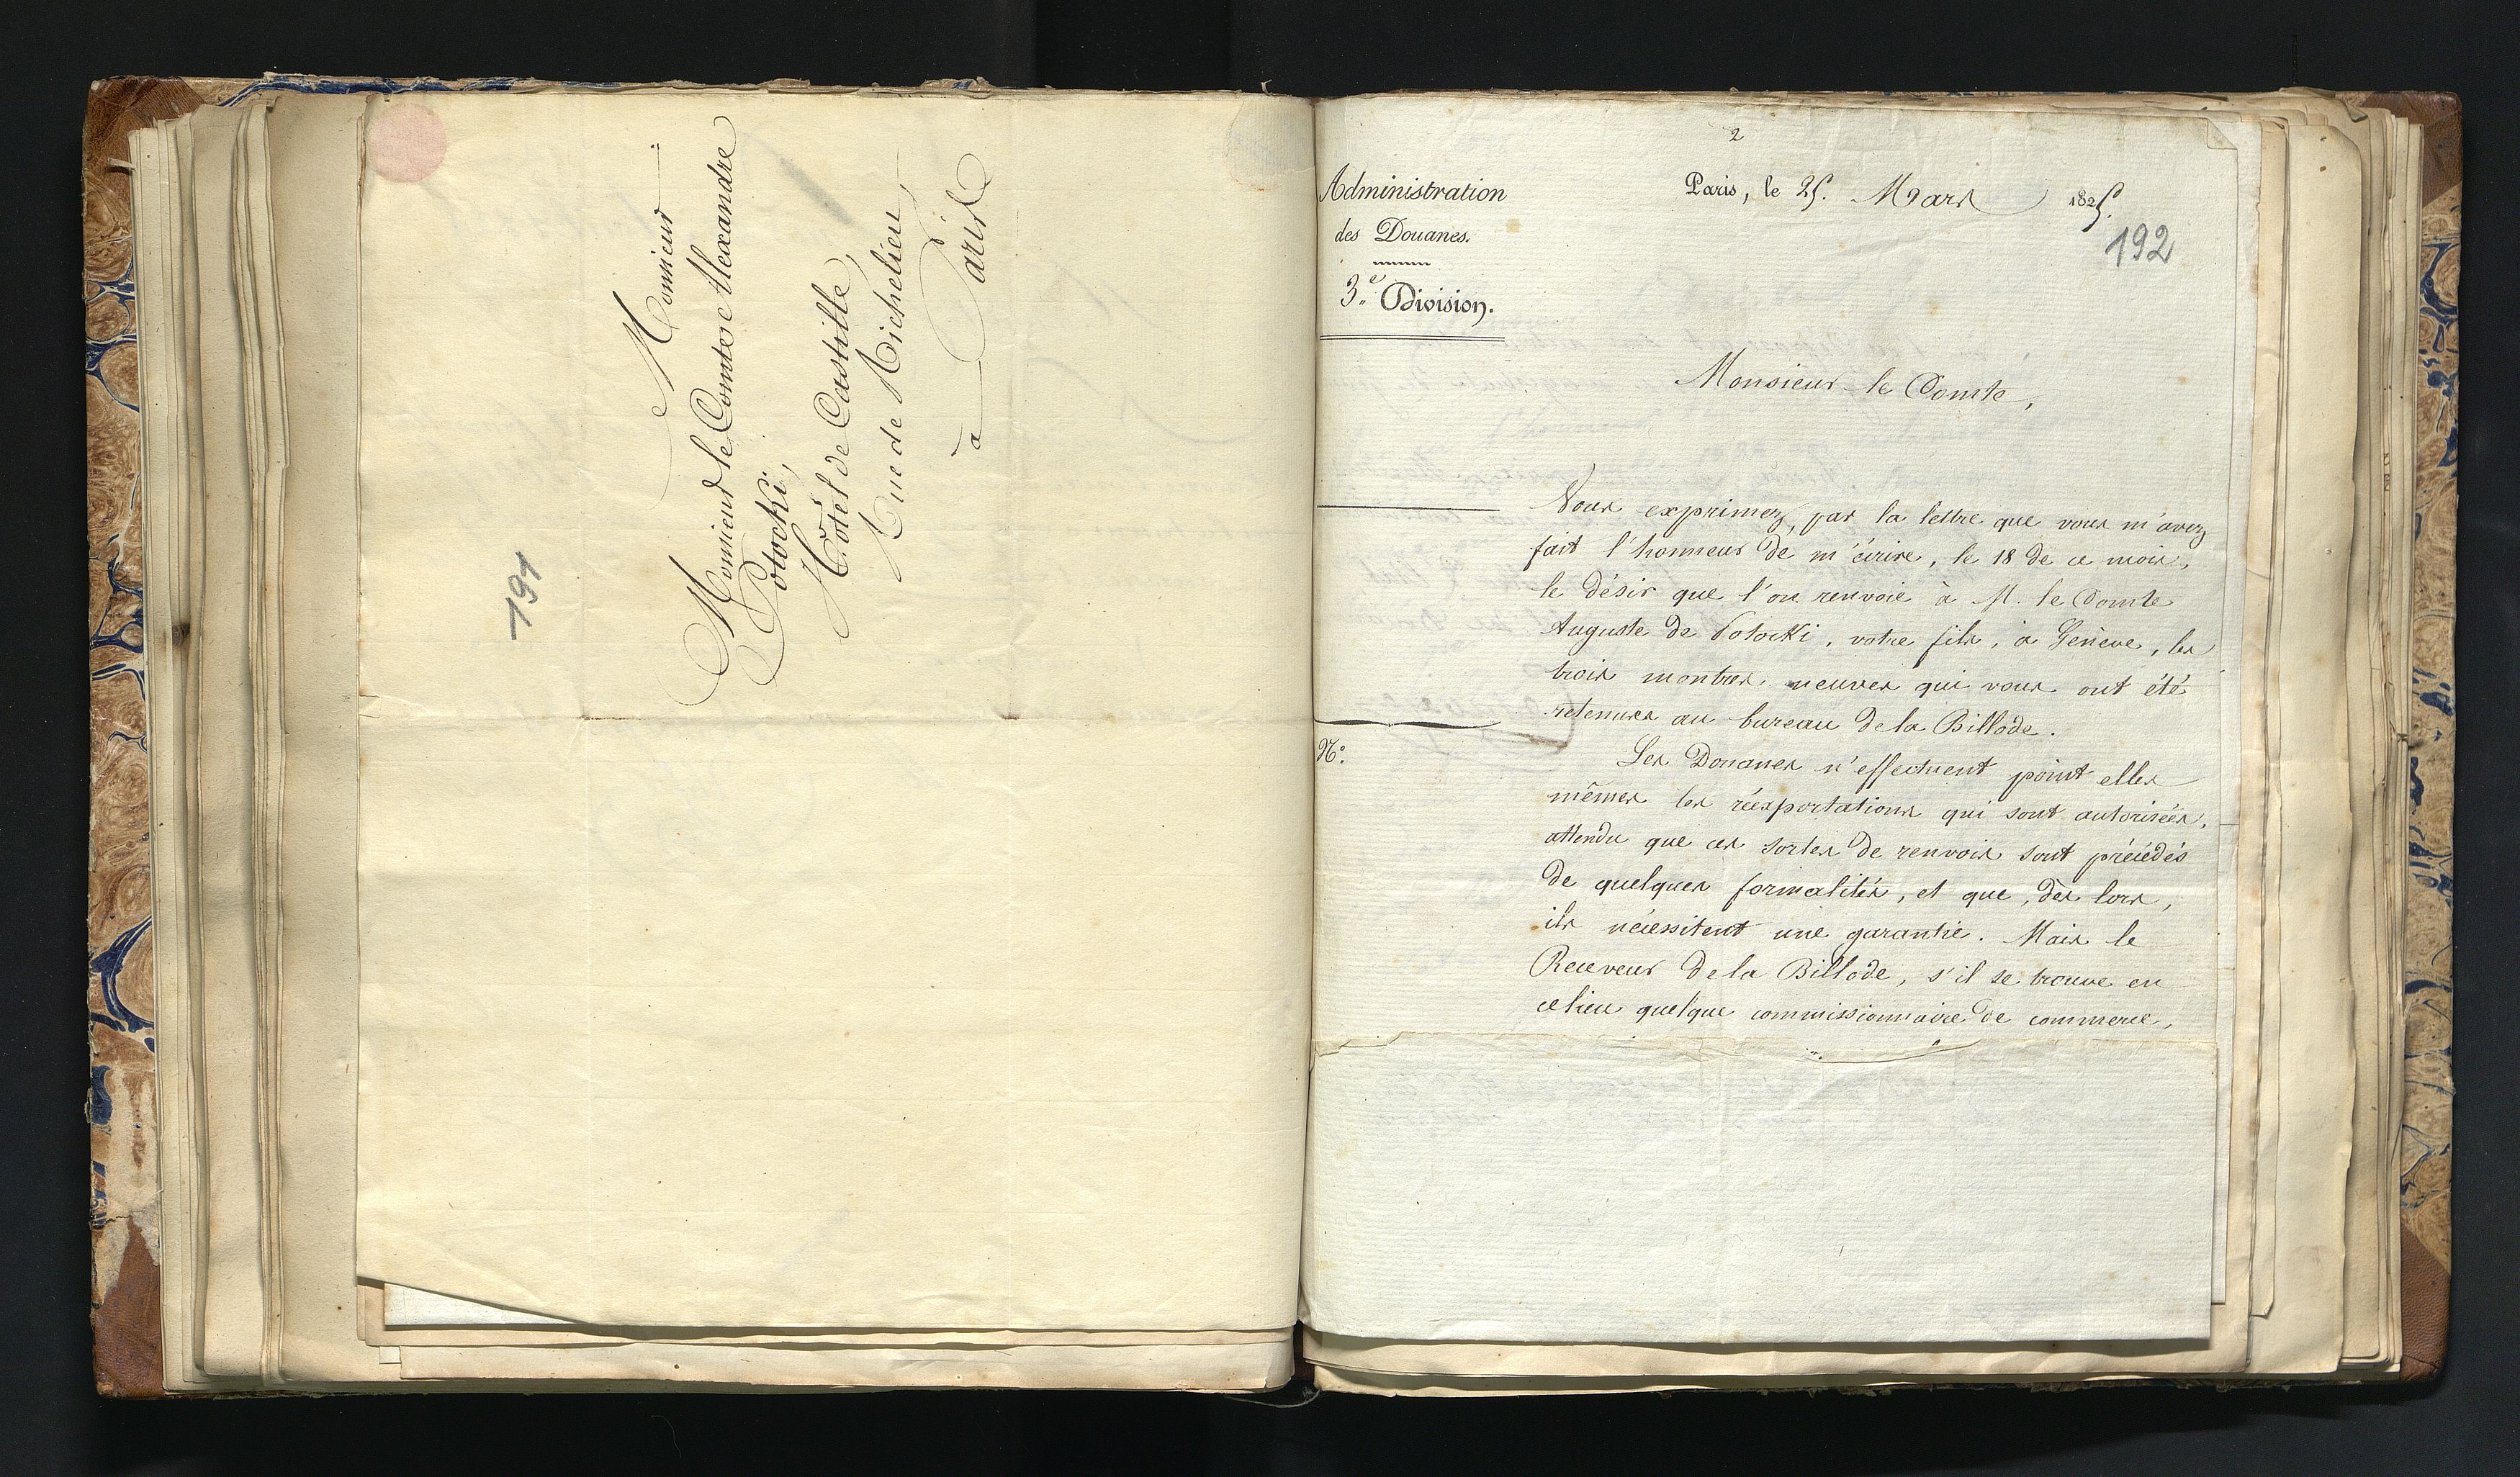 Monsieur
Monsieur le Comte Alexandre
Potocki,
Hôtel de Castille,
Rue de Richelieu,
à Paris
191
2
Administration
des Douanes.
3.e Division.
Paris, le 25. Mars 1825.
192
Monsieur le Comte,
Vous exprimez, par la lettre que vous m'avez
fait l'honneur de m'écrire, le 18 de ce mois,
le désir que l'on renvoie à M. le Comte
Auguste de Potocki, votre fils, à Genève, les
trois montres neuves qui vous ont été
retenues au bureau de la Billode.
N.o
Les Douanes n'effectuent point elles
mêmes les réexportations qui sont autorisées,
attendu que ces sortes de renvois sont précédés
de quelques formalités, et que, dès lors,
ils nécessitent une garantie. Mais le
Receveur de la Billode, s'il se trouve en
ce lieu quelque commissionnaire de commerce,